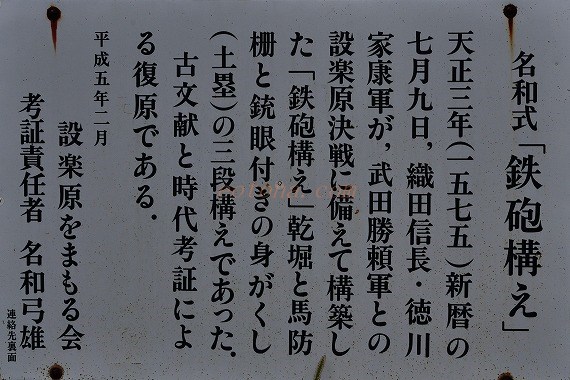 名和式「鉄砲構え」
天正三年(一五七五)新暦の
七月九日，織田信長・徳川
家康軍が，武田勝頼軍との
設楽原決戦に備えて構築し
た「鉄砲構え」乾堀と馬防
柵と銃眼付きの身がくし
(土塁)の三段構えであった．
古文献と時代考証によ
る復原である．
平成五年二月
設楽原をまもる会
考証責任者 名和弓雄
連絡先裏面